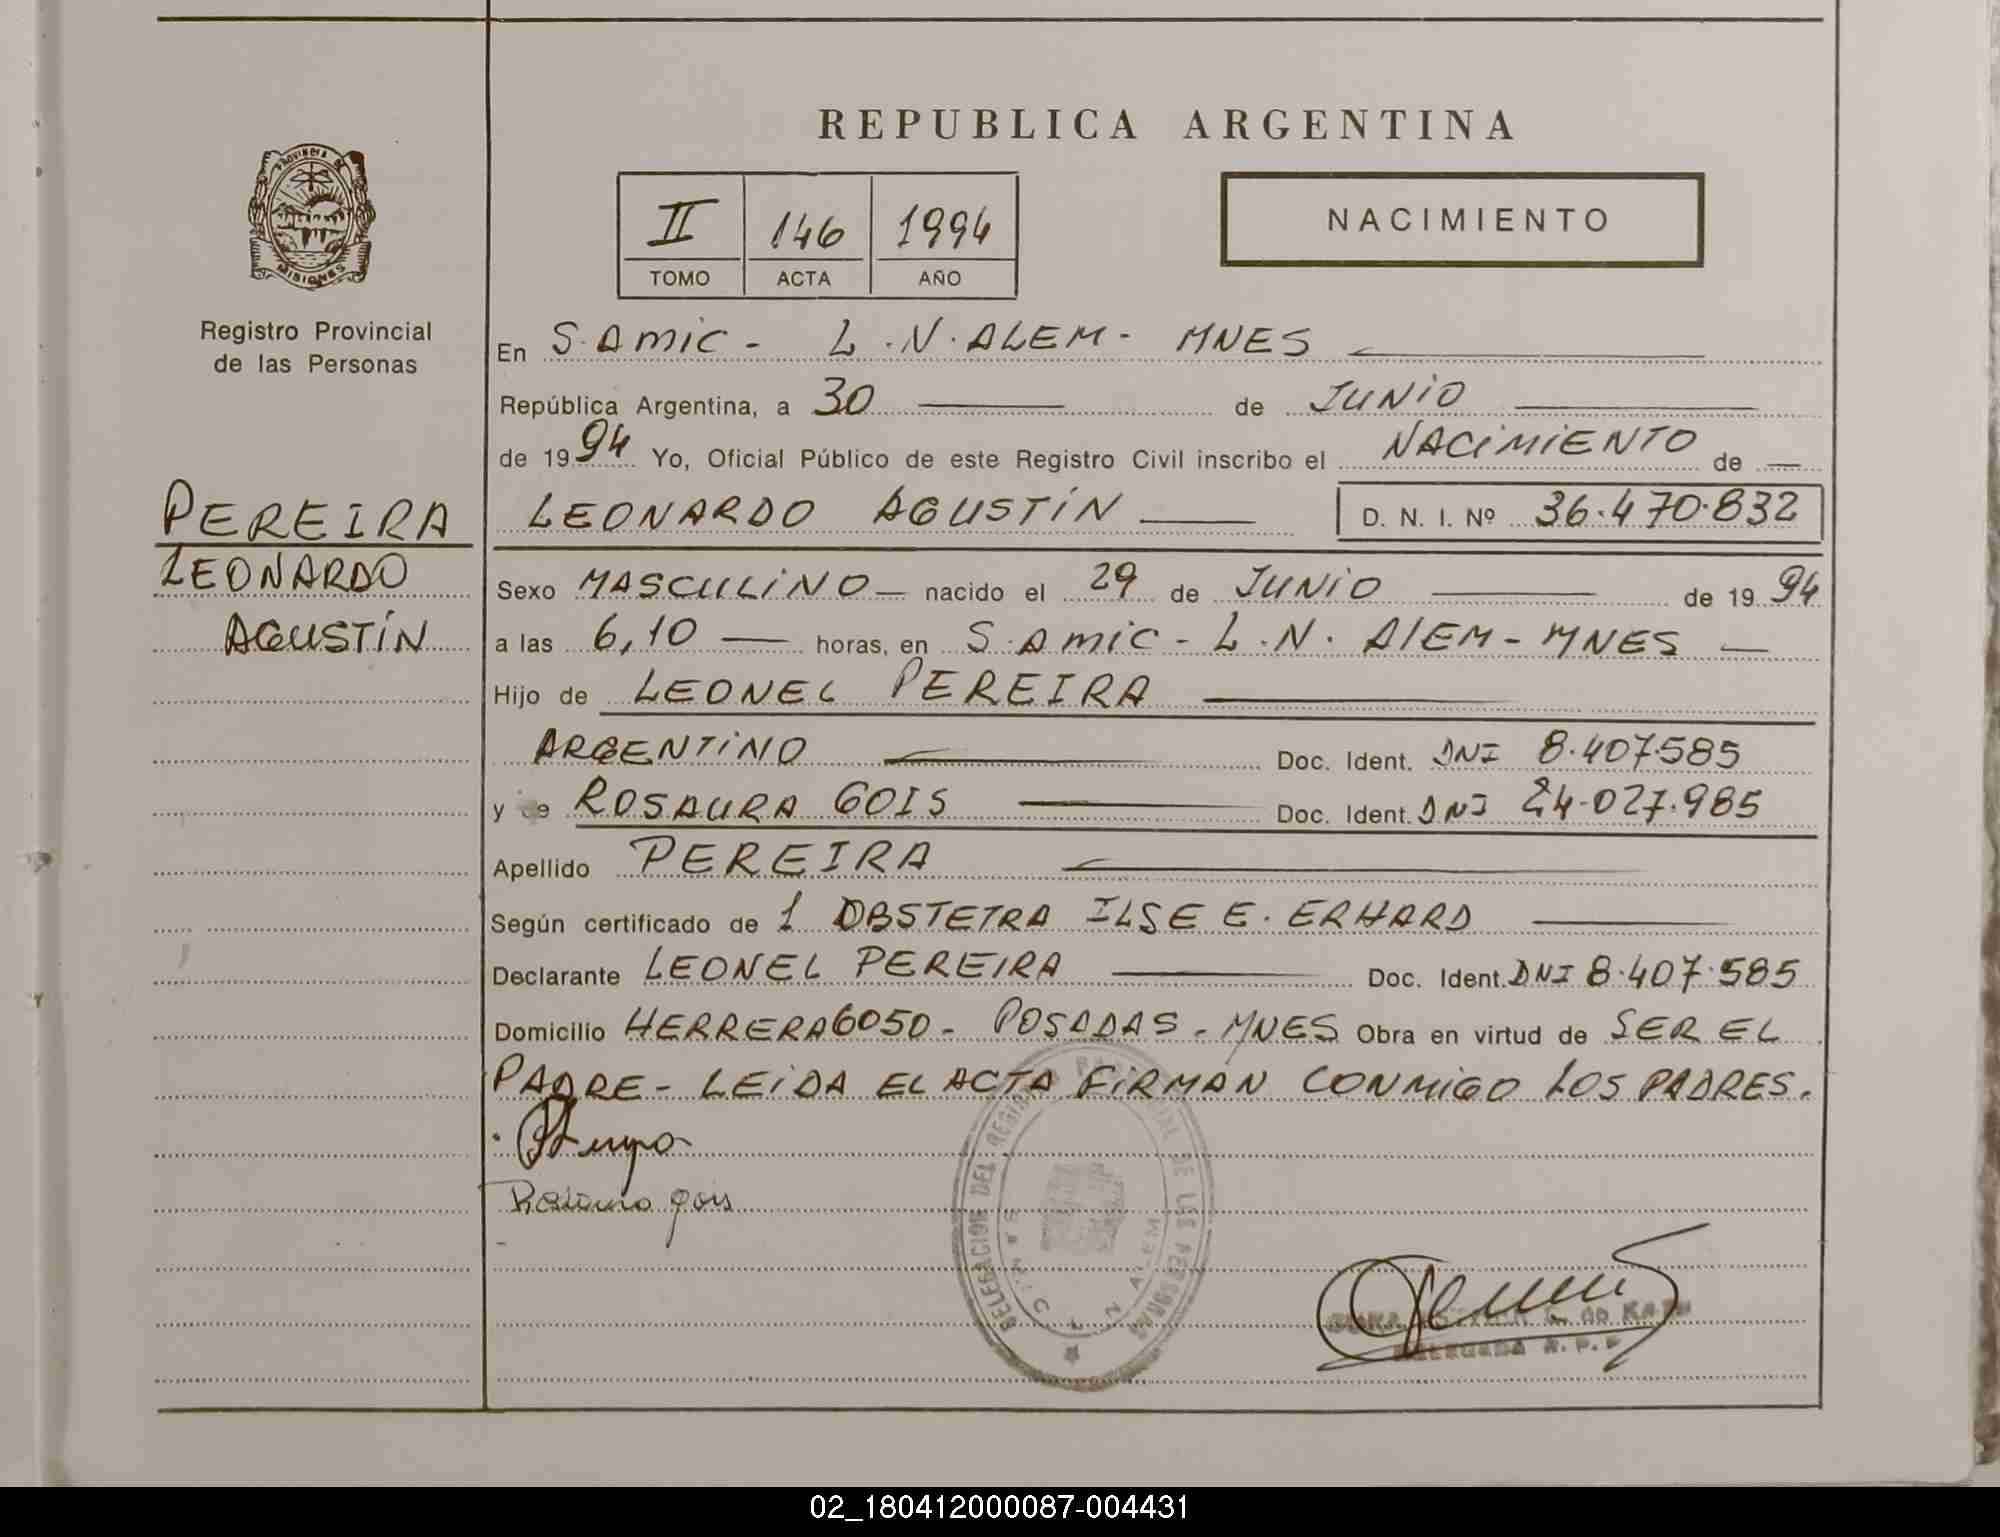 REPUBLICA ARGENTINA
PROVINCIA DE
MISIONES
Registro Provincial
de las Personas
II 146 1994
TOMO ACTA AÑO
NACIMIENTO
PEREIRA
LEONARDO
AGUSTÍN
En S. AMIC - L.N. ALEM - MNES
República Argentina, a 30 de JUNIO
de 1994 Yo, Oficial Público de este Registro Civil inscribo el NACIMIENTO de
LEONARDO AGUSTÍN D. N. I. Nº 36.470.832
Sexo MASCULINO nacido el 29 de JUNIO de 1994
a las 6,10 horas, en S. AMIC - L.N. ALEM - MNES
Hijo de LEONEL PEREIRA
ARGENTINO Doc. Ident. DNI 8.407.585
y de ROSAURA GOIS Doc. Ident. DNI 24.027.985
Apellido PEREIRA
Según certificado de 1 OBSTETRA ILSE E. ERHARD
Declarante LEONEL PEREIRA Doc. Ident. DNI 8.407.585
Domicilio HERRERA 6050 - POSADAS - MNES Obra en virtud de SER EL
PADRE - LEIDA EL ACTA FIRMAN CONMIGO LOS PADRES.
gois
DELEGACION DEL REGISTRO PROVINCIAL DE LAS PERSONAS
L N ALEM
DELEGADA R. P. P.
02_180412000087-004431